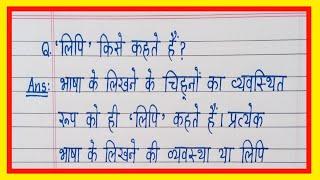 Q. 'लिपि' किसे कहते हैं?
Ans: भाषा के लिखने के चिह्नों का व्यवस्थित
रूप को ही 'लिपि' कहते हैं। प्रत्येक
भाषा के लिखने की व्यवस्था या लिपि